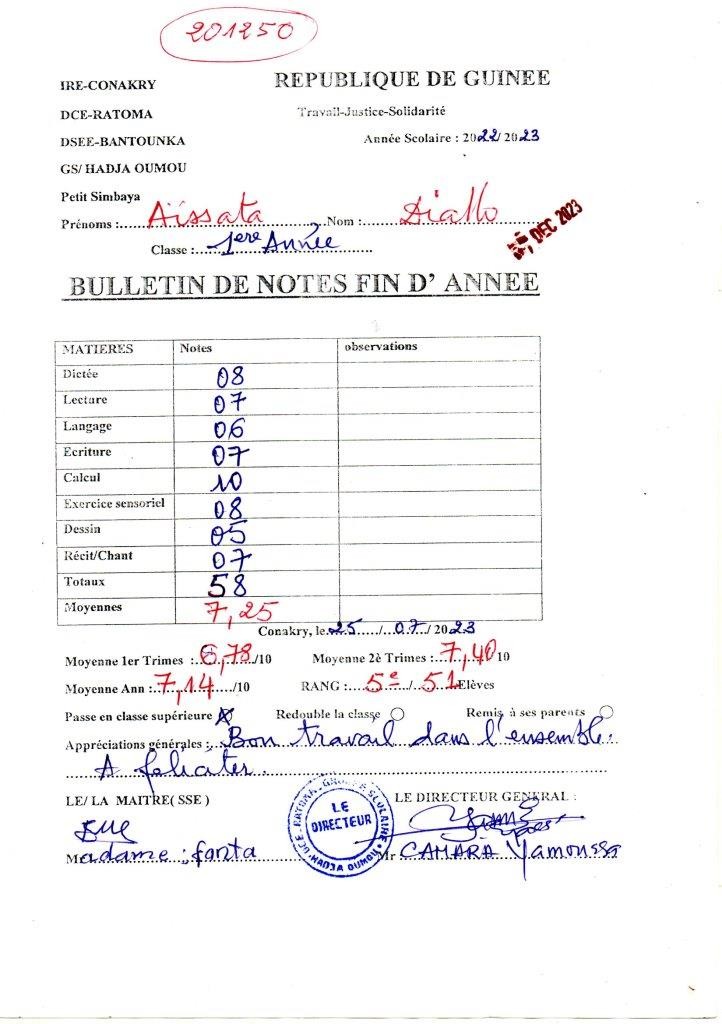 201250
IRE-CONAKRY REPUBLIQUE DE GUINEE
DCE-RATOMA Travail-Justice-Solidarité
DSEE-BANTOUNKA Année Scolaire : 2022/2023
GS/ HADJA OUMOU
Petit Simbaya
Prénoms :......Aïssata......Nom :......Diallo......
DEC 2023
Classe :......1ere Année......
BULLETIN DE NOTES FIN D' ANNEE
MATIERES Notes observations
Dictée 08
Lecture 07
Langage 06
Ecriture 07
Calcul 10
Exercice sensoriel 08
Dessin 05
Récit/Chant 07
Totaux 58
Moyennes 7,25
Conakry, le 25....../...07.../ 2023
Moyenne 1er Trimes :6,78.../10 Moyenne 2è Trimes :...7,40 10
Moyenne Ann :..7,14....../10 RANG :......5e....../...51 Elèves
Passe en classe supérieure Redouble la classe Remis à ses parents
Appréciations générales :..Bon travail dans l'ensemble.
A féliciter.
LE/ LA MAITRE( SSE ) LE DIRECTEUR GENERAL :
DCE-RATOMA-GROUPE SCOLAIRE
LE
DIRECTEUR
HADJA OUMOU
Madame : fanta Mr CAMARA Yamoussa